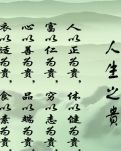 人生之贵
人以正为贵，体以健为贵
富以仁为贵，穷以志为贵
心以善为贵，品以为贵
衣以适为贵，食以素为贵